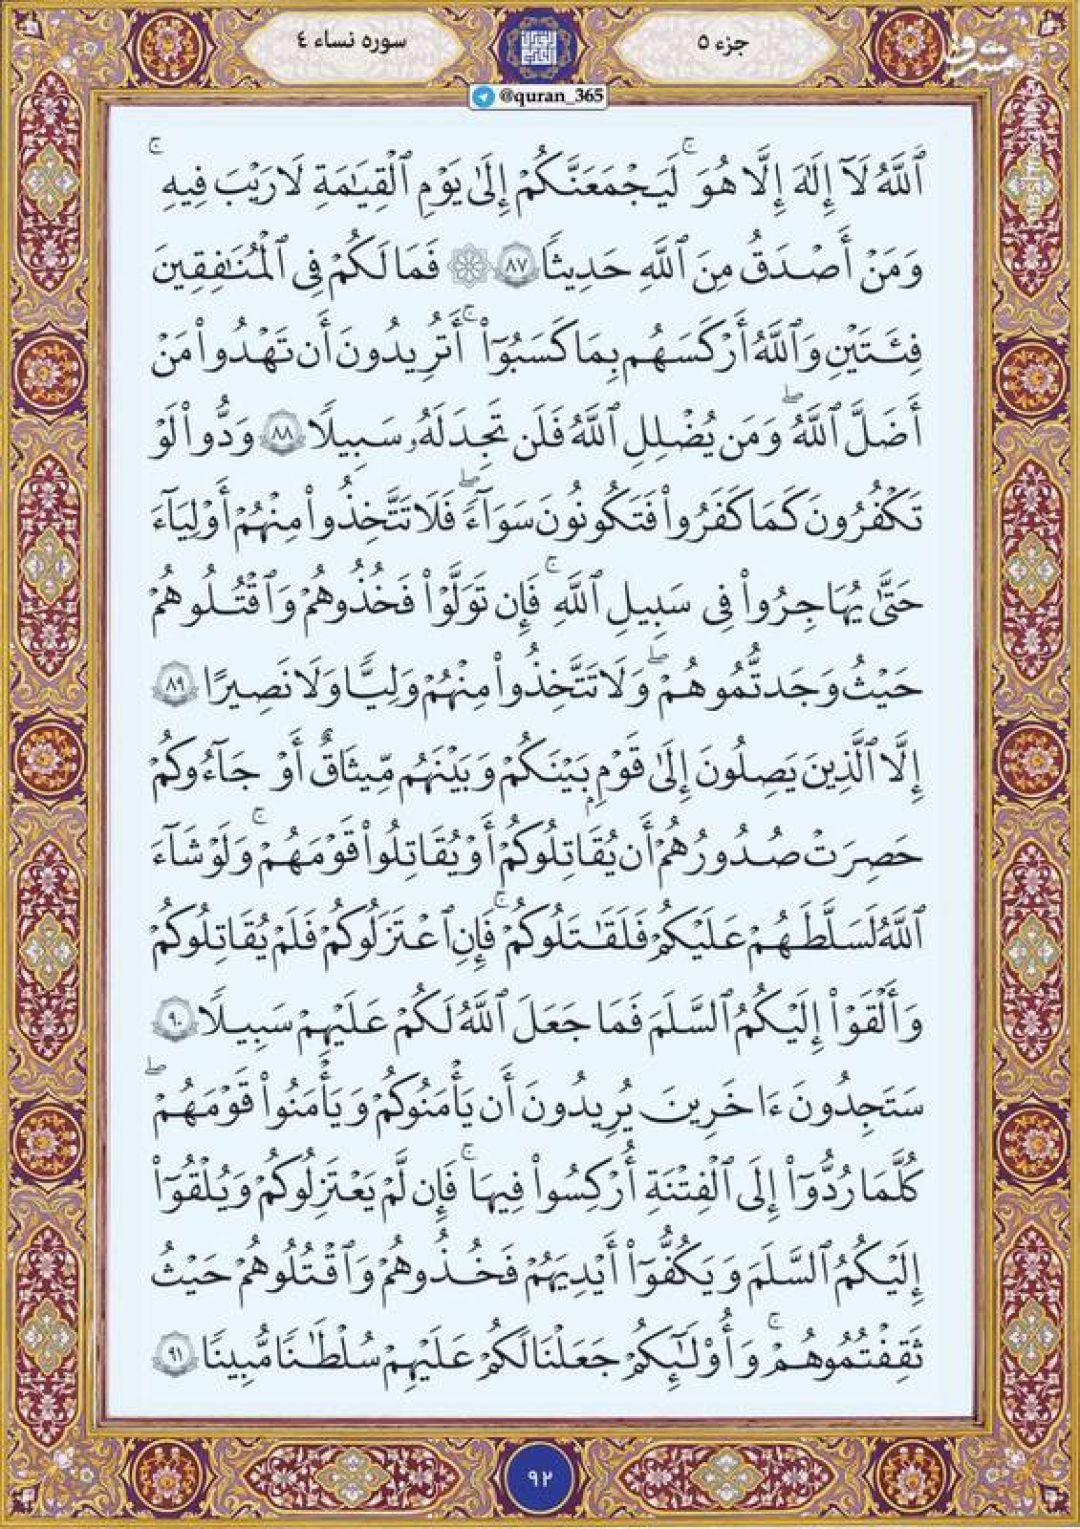 جزء ۵
سوره نساء ۴
@quran_365
ٱللَّهُ لَآ إِلَٰهَ إِلَّا هُوَ ۚ لَيَجْمَعَنَّكُمْ إِلَىٰ يَوْمِ ٱلْقِيَٰمَةِ لَا رَيْبَ فِيهِ ۚ
وَمَنْ أَصْدَقُ مِنَ ٱللَّهِ حَدِيثًا ٨٧ ۞ فَمَا لَكُمْ فِى ٱلْمُنَٰفِقِينَ
فِئَتَيْنِ وَٱللَّهُ أَرْكَسَهُم بِمَا كَسَبُوٓا۟ ۚ أَتُرِيدُونَ أَن تَهْدُوا۟ مَنْ
أَضَلَّ ٱللَّهُ ۖ وَمَن يُضْلِلِ ٱللَّهُ فَلَن تَجِدَ لَهُۥ سَبِيلًا ٨٨ وَدُّوا۟ لَوْ
تَكْفُرُونَ كَمَا كَفَرُوا۟ فَتَكُونُونَ سَوَآءً ۖ فَلَا تَتَّخِذُوا۟ مِنْهُمْ أَوْلِيَآءَ
حَتَّىٰ يُهَاجِرُوا۟ فِى سَبِيلِ ٱللَّهِ ۚ فَإِن تَوَلَّوْا۟ فَخُذُوهُمْ وَٱقْتُلُوهُمْ
حَيْثُ وَجَدتُّمُوهُمْ ۖ وَلَا تَتَّخِذُوا۟ مِنْهُمْ وَلِيًّا وَلَا نَصِيرًا ٨٩
إِلَّا ٱلَّذِينَ يَصِلُونَ إِلَىٰ قَوْمٍۭ بَيْنَكُمْ وَبَيْنَهُم مِّيثَٰقٌ أَوْ جَآءُوكُمْ
حَصِرَتْ صُدُورُهُمْ أَن يُقَٰتِلُوكُمْ أَوْ يُقَٰتِلُوا۟ قَوْمَهُمْ ۚ وَلَوْ شَآءَ
ٱللَّهُ لَسَلَّطَهُمْ عَلَيْكُمْ فَلَقَٰتَلُوكُمْ ۚ فَإِنِ ٱعْتَزَلُوكُمْ فَلَمْ يُقَٰتِلُوكُمْ
وَأَلْقَوْا۟ إِلَيْكُمُ ٱلسَّلَمَ فَمَا جَعَلَ ٱللَّهُ لَكُمْ عَلَيْهِمْ سَبِيلًا ٩٠
سَتَجِدُونَ ءَاخَرِينَ يُرِيدُونَ أَن يَأْمَنُوكُمْ وَيَأْمَنُوا۟ قَوْمَهُمْ ۖ
كُلَّ مَا رُدُّوٓا۟ إِلَى ٱلْفِتْنَةِ أُرْكِسُوا۟ فِيهَا ۚ فَإِن لَّمْ يَعْتَزِلُوكُمْ وَيُلْقُوٓا۟
إِلَيْكُمُ ٱلسَّلَمَ وَيَكُفُّوٓا۟ أَيْدِيَهُمْ فَخُذُوهُمْ وَٱقْتُلُوهُمْ حَيْثُ
ثَقِفْتُمُوهُمْ ۚ وَأُو۟لَٰٓئِكُمْ جَعَلْنَا لَكُمْ عَلَيْهِمْ سُلْطَٰنًا مُّبِينًا ٩١
۹۲